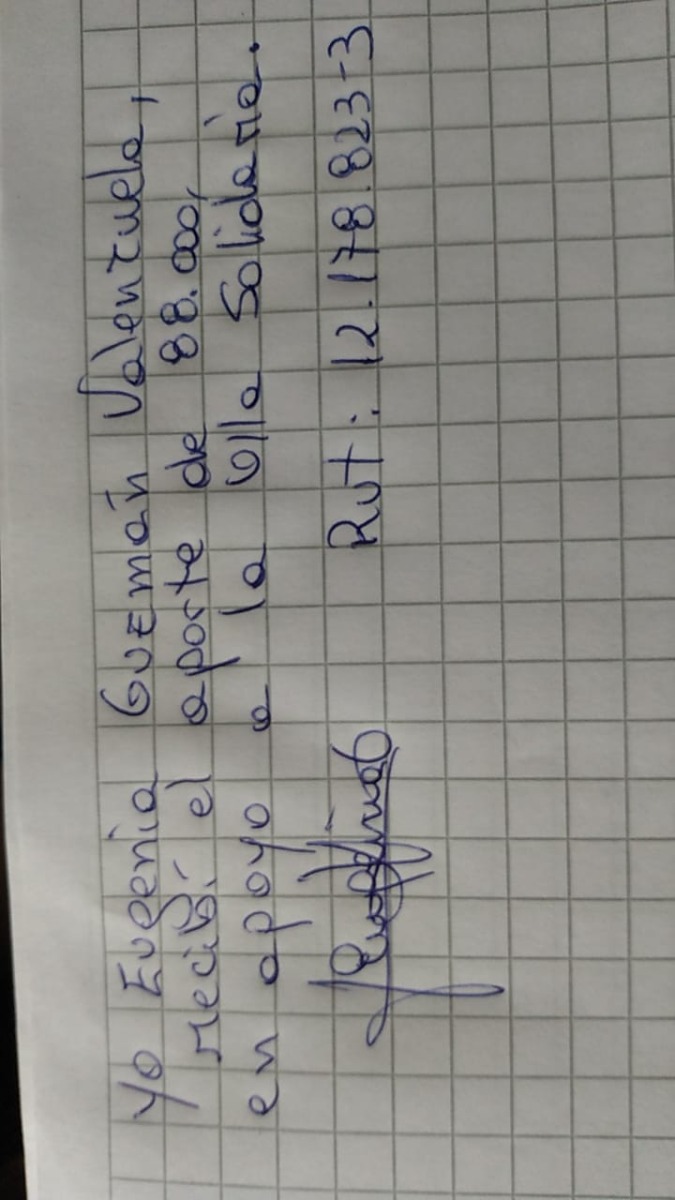 Yo Eugenia Guzmán Valenzuela,
recibí el aporte de 88.000,
en apoyo a la Olla Solidaria.
Rut: 12.178.823-3